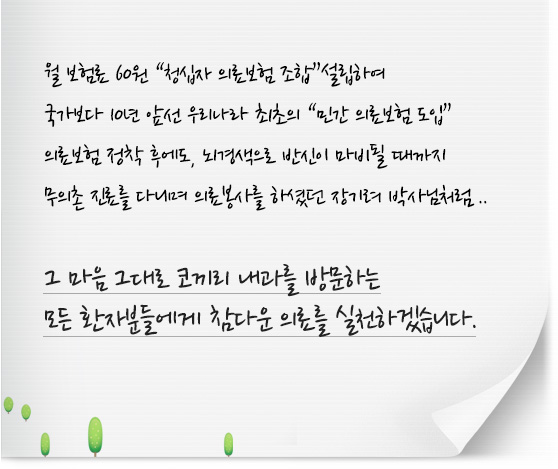 월 보험료 60원 “청십자 의료보험 조합”설립하여
국가보다 10년 앞선 우리나라 최초의 “민간 의료보험 도입”
의료보험 정착 후에도, 뇌경색으로 반신이 마비될 때까지
무의촌 진료를 다니며 의료봉사를 하셨던 장기려 박사님처럼..
그 마음 그대로 코끼리 내과를 방문하는
모든 환자분들에게 참다운 의료를 실천하겠습니다.